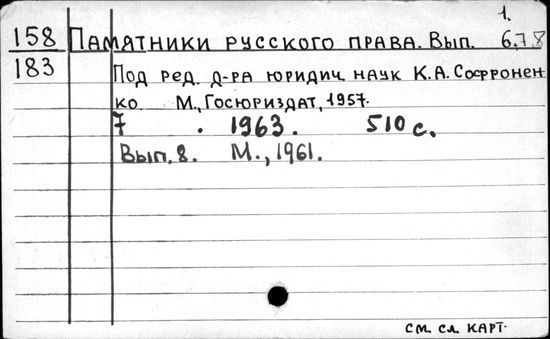 1.
158 Памятники русского права. Вып. 6,7,8
183 Под ред. д-ра юридич. наук К.А. Софронен-
ко М., Госюриздат, 1957.
7 . 1963. 510 с.
Вып. 8. М., 1961.
см. сл. карт.